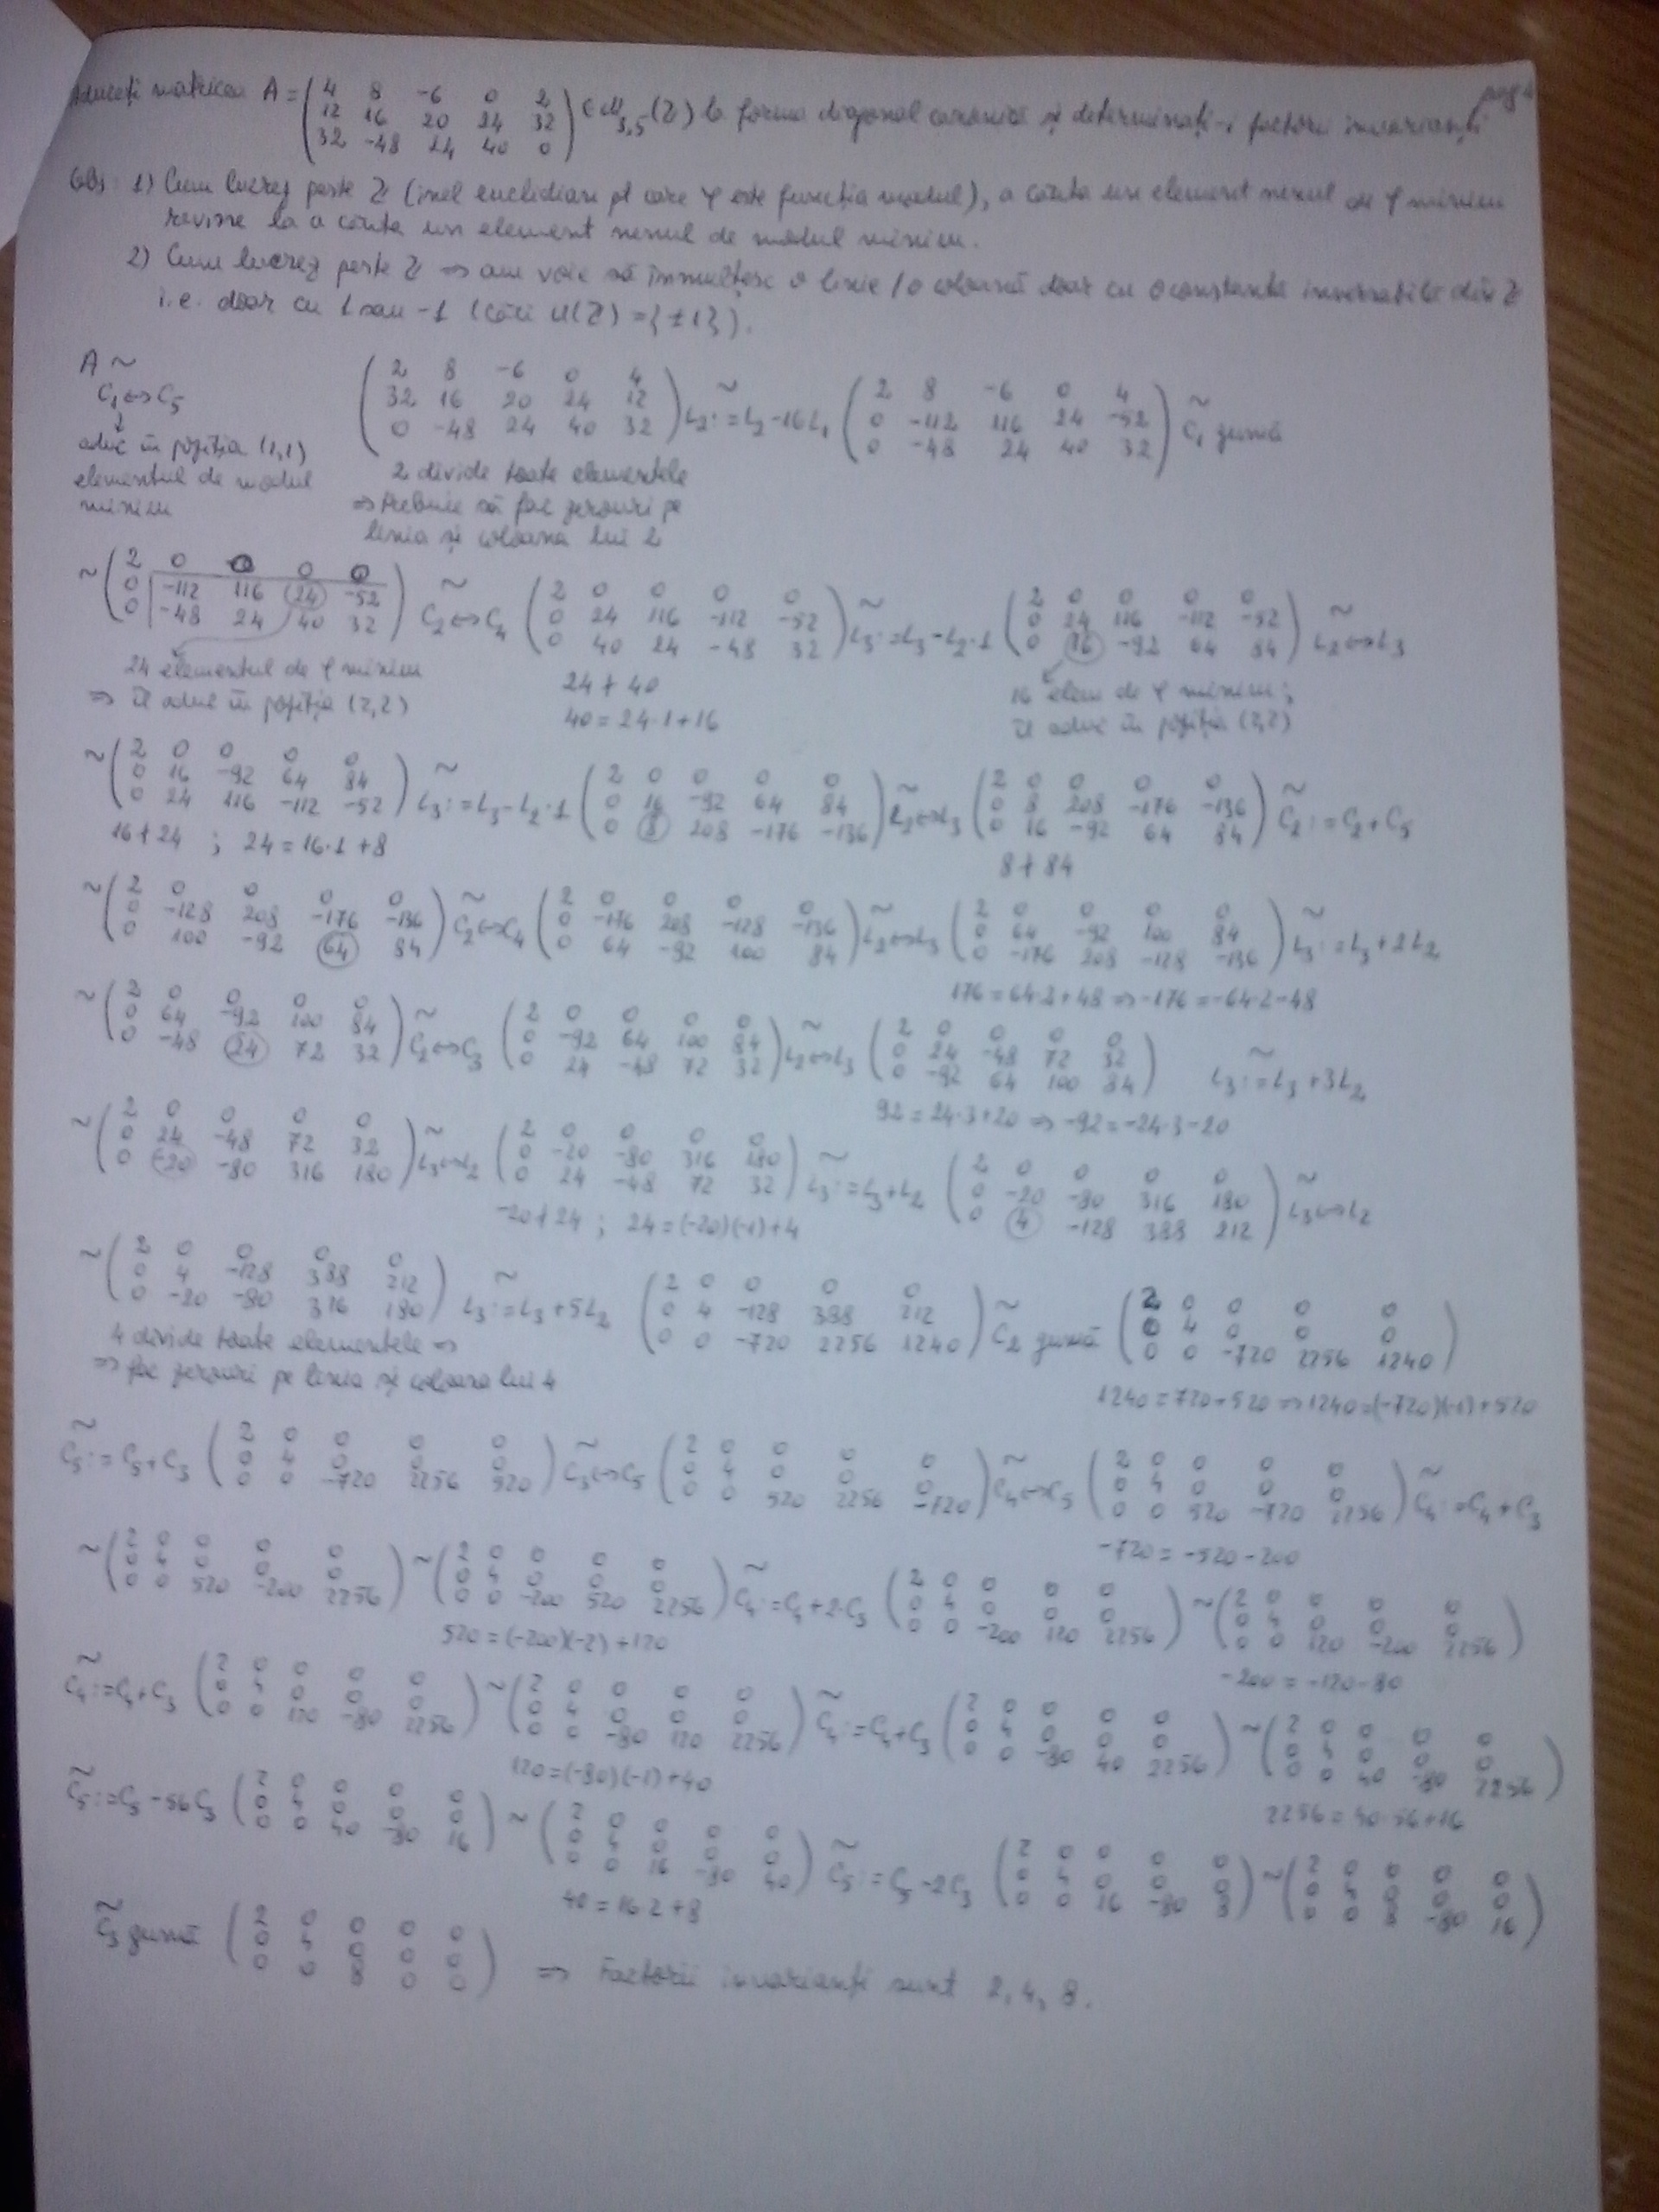 pag 1
Aduceți matricea A = ( 4 8 -6 0 2 / 12 16 20 24 32 / 32 -48 24 40 0 ) ∈ M3,5(Z) la forma diagonal canonică și determinați-i factorii invarianți
Obs: 1) Cum lucrez peste Z (inel euclidian pt care φ este funcția modul), a căuta un element nenul de φ minim
revine la a căuta un element nenul de modul minim.
2) Cum lucrez peste Z ⇒ am voie să înmulțesc o linie / o coloană doar cu o constanta inversabilă din Z
i.e. doar cu 1 sau -1 (căci U(Z) = {±1}).
A ~ C1↔C5 ( 2 8 -6 0 4 / 32 16 20 24 12 / 0 -48 24 40 32 ) ~ L2:=L2-16L1 ( 2 8 -6 0 4 / 0 -112 116 24 -52 / 0 -48 24 40 32 ) ~ C1 gumă
↓
aduc în poziția (1,1)
elementul de modul
minim
2 divide toate elementele
⇒ trebuie să fac zerouri pe
linia și coloana lui 2
~ ( 2 0 0 0 0 / 0 -112 116 24 -52 / 0 -48 24 40 32 ) ~ C2↔C4 ( 2 0 0 0 0 / 0 24 116 -112 -52 / 0 40 24 -48 32 ) ~ L3:=L3-L2·1 ( 2 0 0 0 0 / 0 24 116 -112 -52 / 0 16 -92 64 84 ) ~ L2↔L3
24 elementul de φ minim
⇒ îl aduc în poziția (2,2)
24 ∤ 40
40 = 24·1+16
16 elem de φ minim;
îl aduc în poziția (2,2)
~ ( 2 0 0 0 0 / 0 16 -92 64 84 / 0 24 116 -112 -52 ) ~ L3:=L3-L2·1 ( 2 0 0 0 0 / 0 16 -92 64 84 / 0 8 208 -176 -136 ) ~ L2↔L3 ( 2 0 0 0 0 / 0 8 208 -176 -136 / 0 16 -92 64 84 ) ~ C2:=C2+C5
16 ∤ 24 ; 24 = 16·1+8
8 ∤ 84
~ ( 2 0 0 0 0 / 0 -128 208 -176 -136 / 0 100 -92 64 84 ) ~ C2↔C4 ( 2 0 0 0 0 / 0 -176 208 -128 -136 / 0 64 -92 100 84 ) ~ L2↔L3 ( 2 0 0 0 0 / 0 64 -92 100 84 / 0 -176 208 -128 -136 ) ~ L3:=L3+2L2
176 = 64·2+48 ⇒ -176 = -64·2-48
~ ( 2 0 0 0 0 / 0 64 -92 100 84 / 0 -48 24 72 32 ) ~ C2↔C3 ( 2 0 0 0 0 / 0 -92 64 100 84 / 0 24 -48 72 32 ) ~ L2↔L3 ( 2 0 0 0 0 / 0 24 -48 72 32 / 0 -92 64 100 84 ) ~ L3:=L3+3L2
92 = 24·3+20 ⇒ -92 = -24·3-20
~ ( 2 0 0 0 0 / 0 24 -48 72 32 / 0 -20 -80 316 180 ) ~ L3↔L2 ( 2 0 0 0 0 / 0 -20 -80 316 180 / 0 24 -48 72 32 ) ~ L3:=L3+L2 ( 2 0 0 0 0 / 0 -20 -80 316 180 / 0 4 -128 388 212 ) ~ L3↔L2
-20 ∤ 24 ; 24 = (-20)(-1)+4
~ ( 2 0 0 0 0 / 0 4 -128 388 212 / 0 -20 -80 316 180 ) ~ L3:=L3+5L2 ( 2 0 0 0 0 / 0 4 -128 388 212 / 0 0 -720 2256 1240 ) ~ C2 gumă ( 2 0 0 0 0 / 0 4 0 0 0 / 0 0 -720 2256 1240 )
4 divide toate elementele ⇒
⇒ fac zerouri pe linia și coloana lui 4
1240 = 720+520 ⇒ 1240 = (-720)(-1)+520
~ C5:=C5+C3 ( 2 0 0 0 0 / 0 4 0 0 0 / 0 0 -720 2256 520 ) ~ C3↔C5 ( 2 0 0 0 0 / 0 4 0 0 0 / 0 0 520 2256 -720 ) ~ C4↔C5 ( 2 0 0 0 0 / 0 4 0 0 0 / 0 0 520 -720 2256 ) ~ C4:=C4+C3
-720 = -520-200
~ ( 2 0 0 0 0 / 0 4 0 0 0 / 0 0 520 -200 2256 ) ~ ( 2 0 0 0 0 / 0 4 0 0 0 / 0 0 -200 520 2256 ) ~ C4:=C4+2·C3 ( 2 0 0 0 0 / 0 4 0 0 0 / 0 0 -200 120 2256 ) ~ ( 2 0 0 0 0 / 0 4 0 0 0 / 0 0 120 -200 2256 )
520 = (-200)(-2)+120
-200 = -120-80
~ C4:=C4+C3 ( 2 0 0 0 0 / 0 4 0 0 0 / 0 0 120 -80 2256 ) ~ ( 2 0 0 0 0 / 0 4 0 0 0 / 0 0 -80 120 2256 ) ~ C4:=C4+C3 ( 2 0 0 0 0 / 0 4 0 0 0 / 0 0 -80 40 2256 ) ~ ( 2 0 0 0 0 / 0 4 0 0 0 / 0 0 40 -80 2256 )
120 = (-80)(-1)+40
2256 = 40·56+16
~ C5:=C5-56C3 ( 2 0 0 0 0 / 0 4 0 0 0 / 0 0 40 -80 16 ) ~ ( 2 0 0 0 0 / 0 4 0 0 0 / 0 0 16 -80 40 ) ~ C5:=C5-2C3 ( 2 0 0 0 0 / 0 4 0 0 0 / 0 0 16 -80 8 ) ~ ( 2 0 0 0 0 / 0 4 0 0 0 / 0 0 8 -80 16 )
40 = 16·2+8
~ C3 gumă ( 2 0 0 0 0 / 0 4 0 0 0 / 0 0 8 0 0 ) ⇒ Factorii invarianți sunt 2, 4, 8.